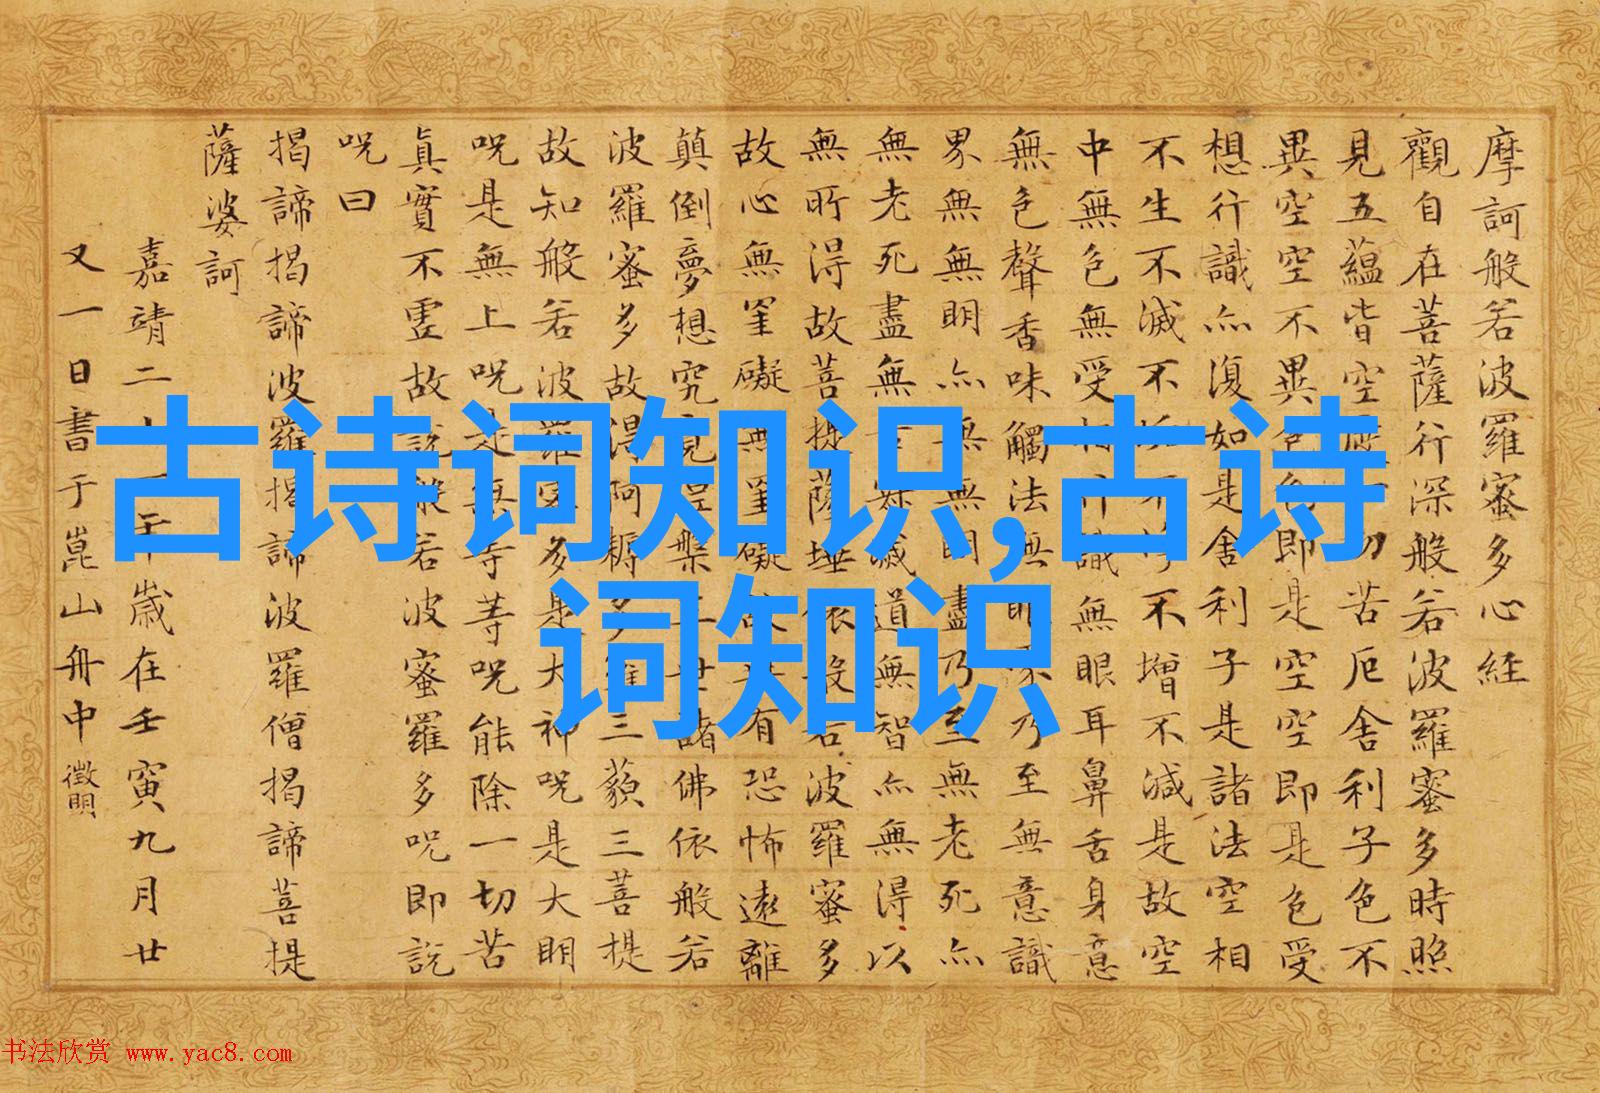 摩訶般若波羅蜜多心経
觀自在菩薩行深般若波羅蜜多時照
見五蘊皆空切苦厄舍利子色不
異空空不異色色即是空空即是色受
想行識亦復如是舍利子是諸法空相
不生不滅不不不增不減是故空
中無色無受想行識無眼耳鼻舌身意
無色聲香味觸法無眼乃至無意識
界無無明亦無無明盡乃至無老死亦
無老死盡無滅道無智亦無得以
無所得故菩提薩埵依般若波羅蜜多
故心無罣礙無罣礙故有恐怖遠離
顛倒夢想究竟涅槃三世諸佛依般若
波羅蜜多故得阿耨多羅三藐三菩提
故知般若波羅蜜多是大神咒是大明
咒是無上咒是無等等咒能除一切苦
真實不虛故說般若波羅蜜多咒即說
咒曰
揭諦揭諦波羅揭諦波羅僧揭諦菩提
薩婆訶
嘉靖二十一年歲在壬寅九月廿
又一日書于崑山舟中 徵明
古诗词知识,古诗
词知识
书法欣赏 www.yac8.com